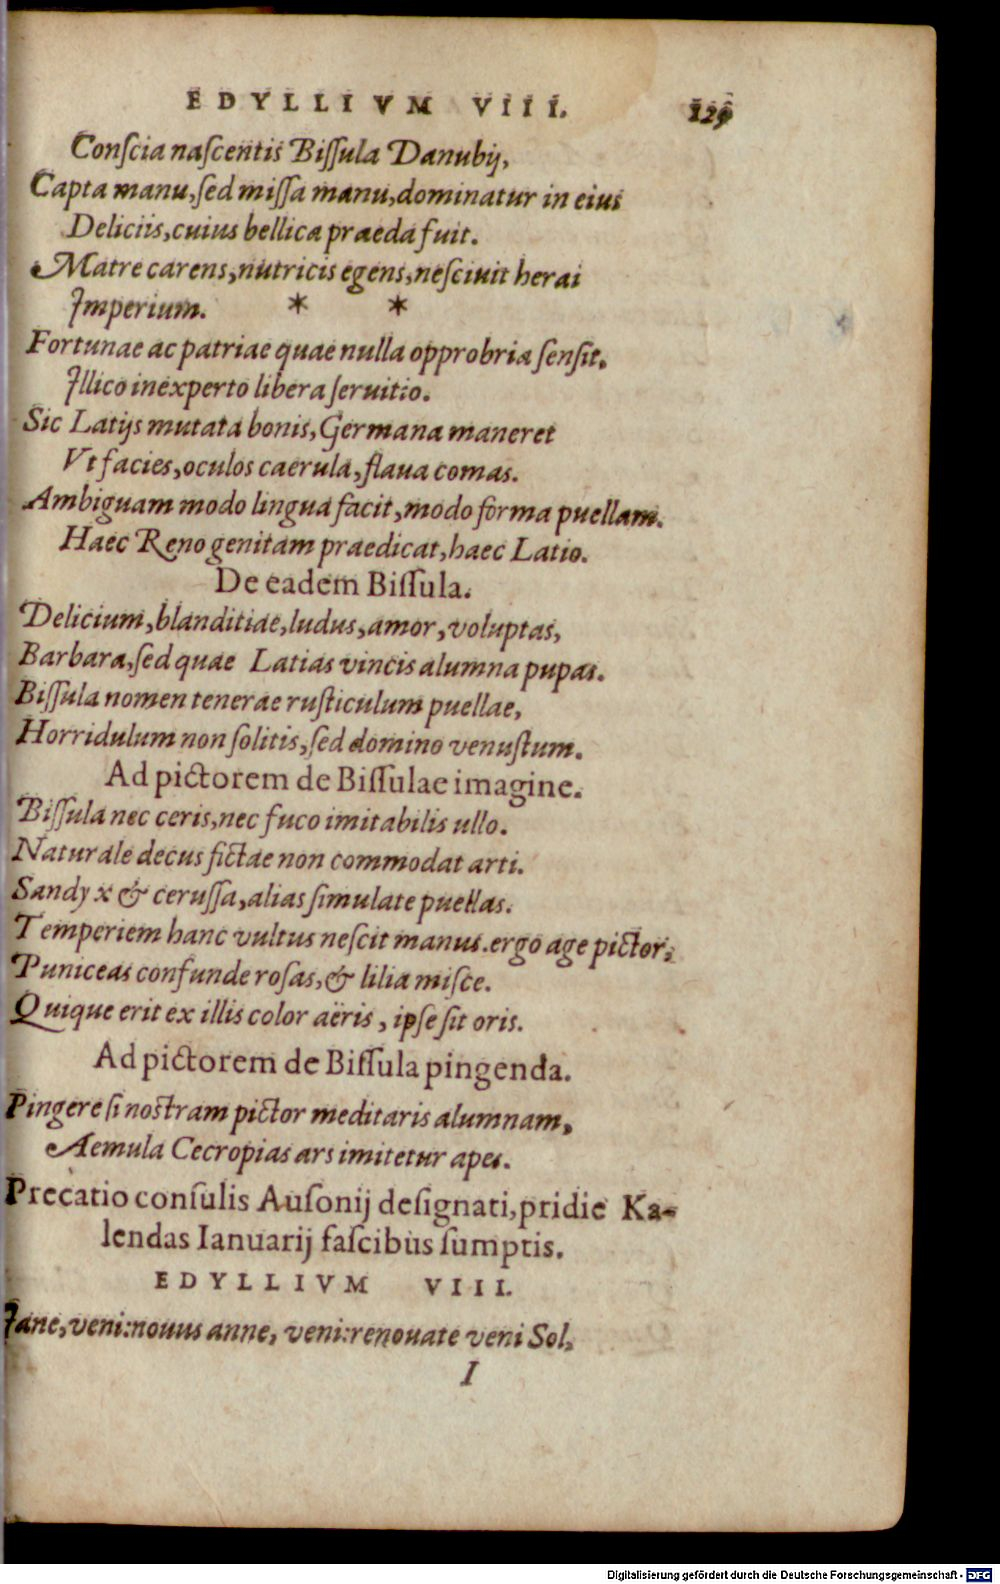 EDYLLIVM VIII. 129
Conſcia naſcentis Biſſula Danubij,
Capta manu, ſed miſſa manu, dominatur in eius
Deliciis, cuius bellica praeda fuit.
Matre carens, nutricis egens, neſciuit herai
Imperium. * *
Fortunae ac patriae quae nulla opprobria ſenſit,
Illico inexperto libera ſeruitio.
Sic Latijs mutata bonis, Germana maneret
Vt facies, oculos caerula, flaua comas.
Ambiguam modo lingua facit, modo forma puellam.
Haec Reno genitam praedicat, haec Latio.
De eadem Biſſula.
Delicium, blanditiae, ludus, amor, voluptas,
Barbara, ſed quae Latias vincis alumna pupas.
Biſſula nomen tenerae ruſticulum puellae,
Horridulum non ſolitis, ſed domino venuſtum.
Ad pictorem de Biſſulae imagine.
Biſſula nec ceris, nec fuco imitabilis ullo.
Naturale decus fictae non commodat arti.
Sandyx & ceruſſa, alias ſimulate puellas.
Temperiem hanc vultus neſcit manus. ergo age pictor,
Puniceas confunde roſas, & lilia miſce.
Quique erit ex illis color aëris, ipſe ſit oris.
Ad pictorem de Biſſula pingenda.
Pingere ſi noſtram pictor meditaris alumnam,
Aemula Cecropias ars imitetur apes.
Precatio conſulis Auſonij deſignati, pridie Ka-
lendas Ianuarij faſcibus ſumptis.
EDYLLIVM VIII.
Iane, veni: nouus anne, veni: renouate veni Sol,
I
Digitalisierung gefördert durch die Deutsche Forschungsgemeinschaft - DFG